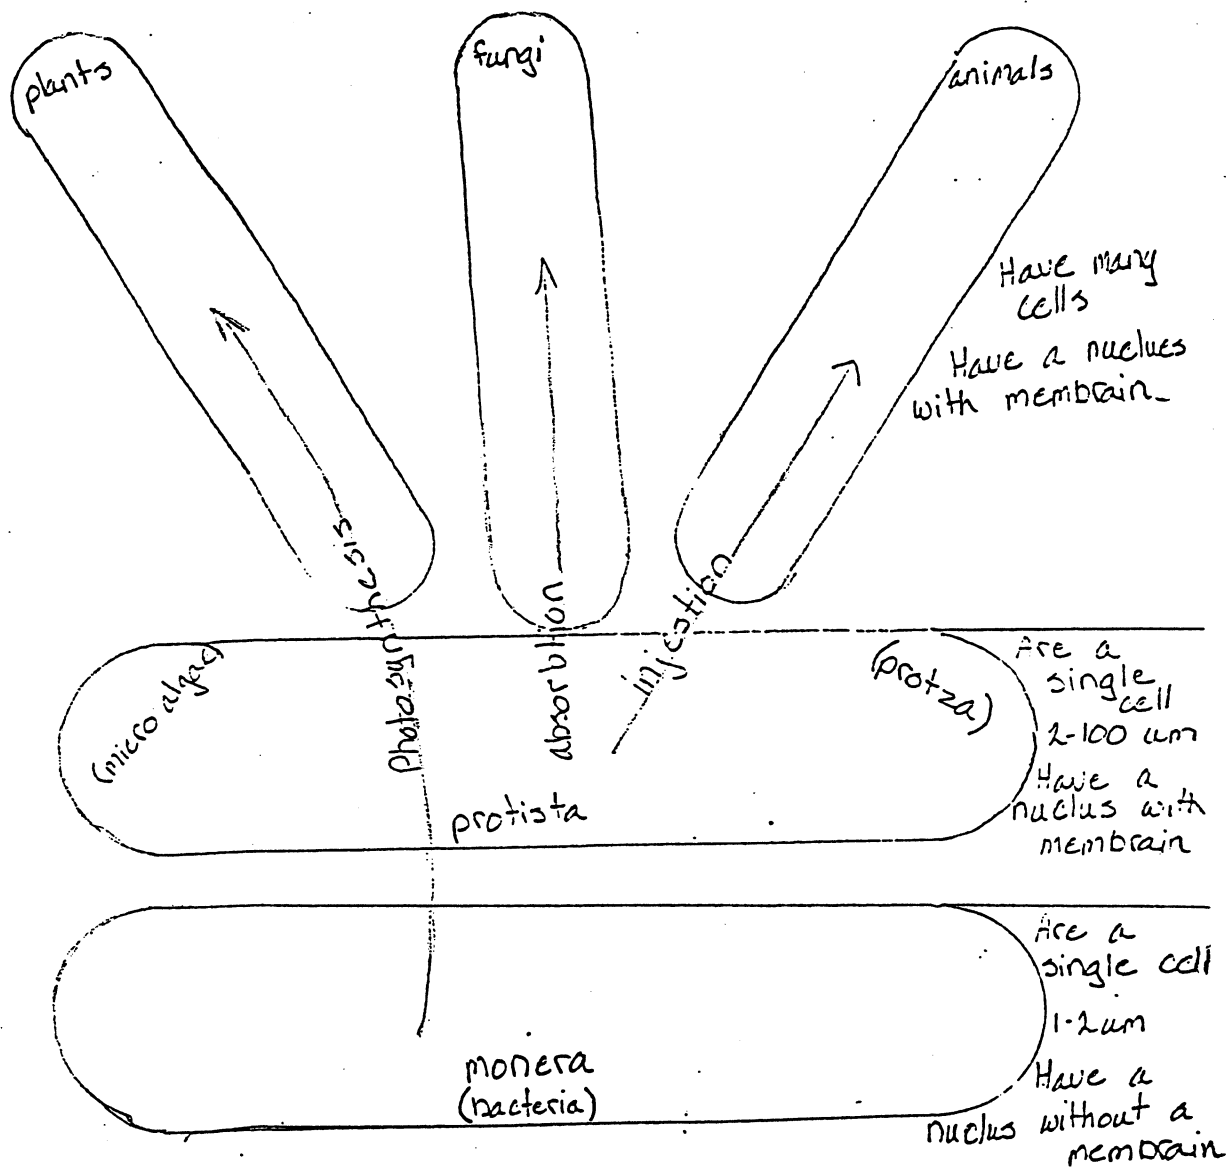 plants
fungi
animals
Have many
cells
Have a nuclues
with membrain
photosynthesis
absorbtion
injestion
(micro algae)
(protza)
protista
Are a
single
cell
2-100 um
Have a
nuclus with
membrain
monera
(bacteria)
Are a
single cell
1-2um
Have a
nuclus without a
membrain